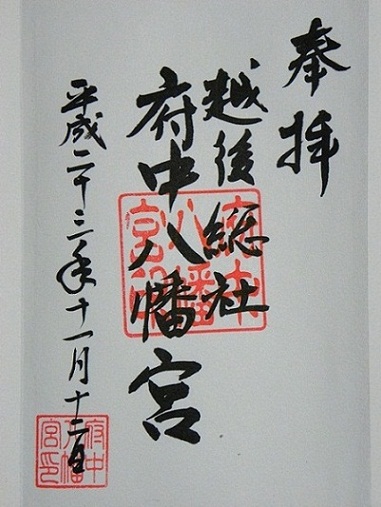 奉拝
越後総社
府中八幡宮
平成二十三年十一月十二日
府中八幡宮
府中八幡宮印